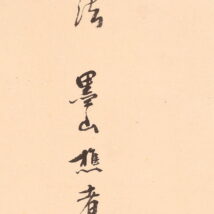 法墨山樵者